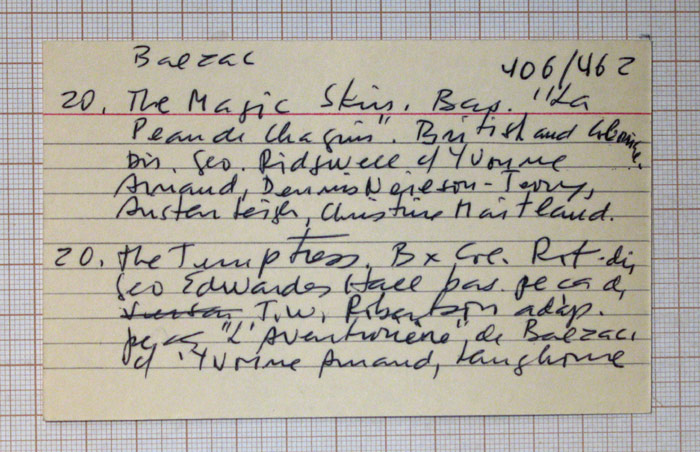 Balzac
406/462
20. The Magic Skin. Bas. "La
Peau de Chagrin". British and Colonial.
Dir. Geo. Ridgwell c/ Yvonne
Arnaud, Dennis Neilson-Terry,
Austen Leigh, Christine Maitland.
20. The Temptress. B x Col. Rot. dir
Geo Edwardes Hall bas. peça de
T.W. Robertson adap.
peça "L'Aventurière", de Balzac.
c/ Yvonne Arnaud, Langhorne